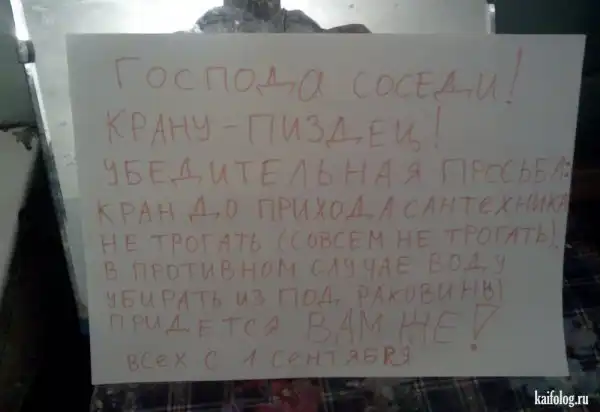 ГОСПОДА СОСЕДИ!
КРАНУ - ПИЗДЕЦ!
УБЕДИТЕЛЬНАЯ ПРОСЬБА:
КРАН ДО ПРИХОДА САНТЕХНИКА
НЕ ТРОГАТЬ (СОВСЕМ НЕ ТРОГАТЬ)!
В ПРОТИВНОМ СЛУЧАЕ ВОДУ
УБИРАТЬ ИЗ ПОД РАКОВИНЫ
ПРИДЕТСЯ ВАМ ЖЕ!
ВСЕХ С 1 СЕНТЯБРЯ
kaifolog.ru